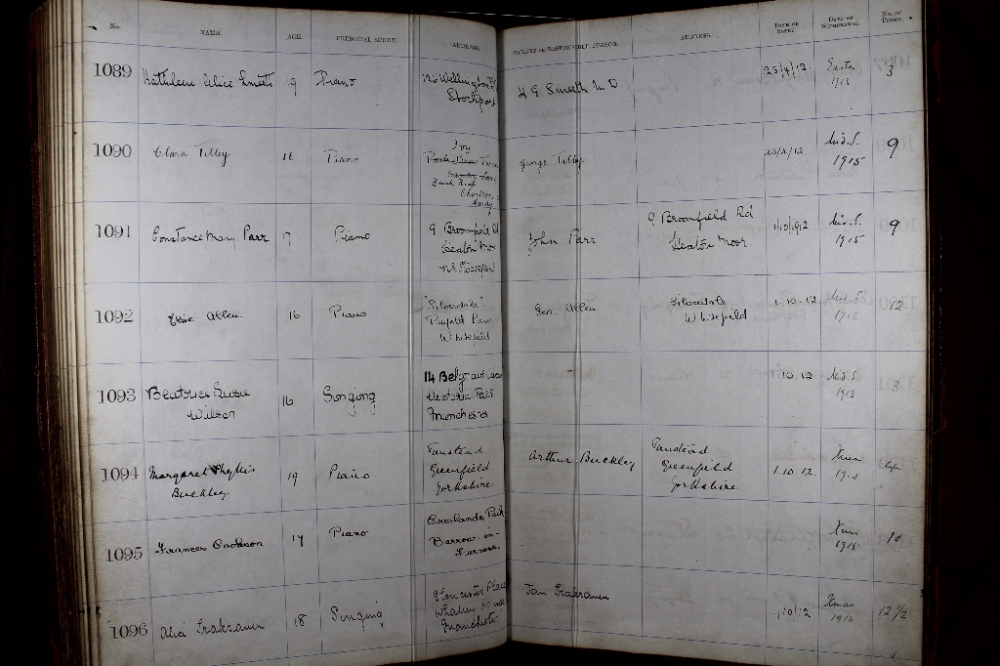 No. NAME. AGE. PRINCIPAL STUDY ADDRESS PARENT OR RESPONSIBLE PERSON. ADDRESS. DATE OF ENTRY DATE OF WITHDRAWAL No. OF TERMS.
1089 Kathleen Alice Smeeth 19 Piano Wellington Rd Stockport H G Smeeth M D 25/4/12 Easter 1913 3
1090 Clara Tilley 16 Piano Ivy George Tilley Mid. S. 1915 9
1091 Constance Mary Parr 17 Piano 9 Broomfield Rd Heaton Moor Nr. Stockport John Parr 9 Broomfield Rd Heaton Moor Mid. S. 1915 9
1092 Elsie Allen. 16 Piano "Silverdale" Lane Geo. Allen Silverdale 1.10.12 1916 12
1093 Beatrice Wilson 16 Singing 14 Belgrave Victoria Park Manchester 1.10.12 Mid. S. 1913 3
1094 Margaret Phyllis Buckley. 19 Piano. Tanstead Greenfield Yorkshire Arthur Buckley Tanstead Greenfield Yorkshire 1.10.12. Xmas 1913 4
1095 Frances Cookson 17 Piano Park Barrow-in-Furness. Xmas 1915 10
1096 18 Singing Gloucester Place Whalley Range Manchester. 1/10/12 Xmas 1916 12 1/2